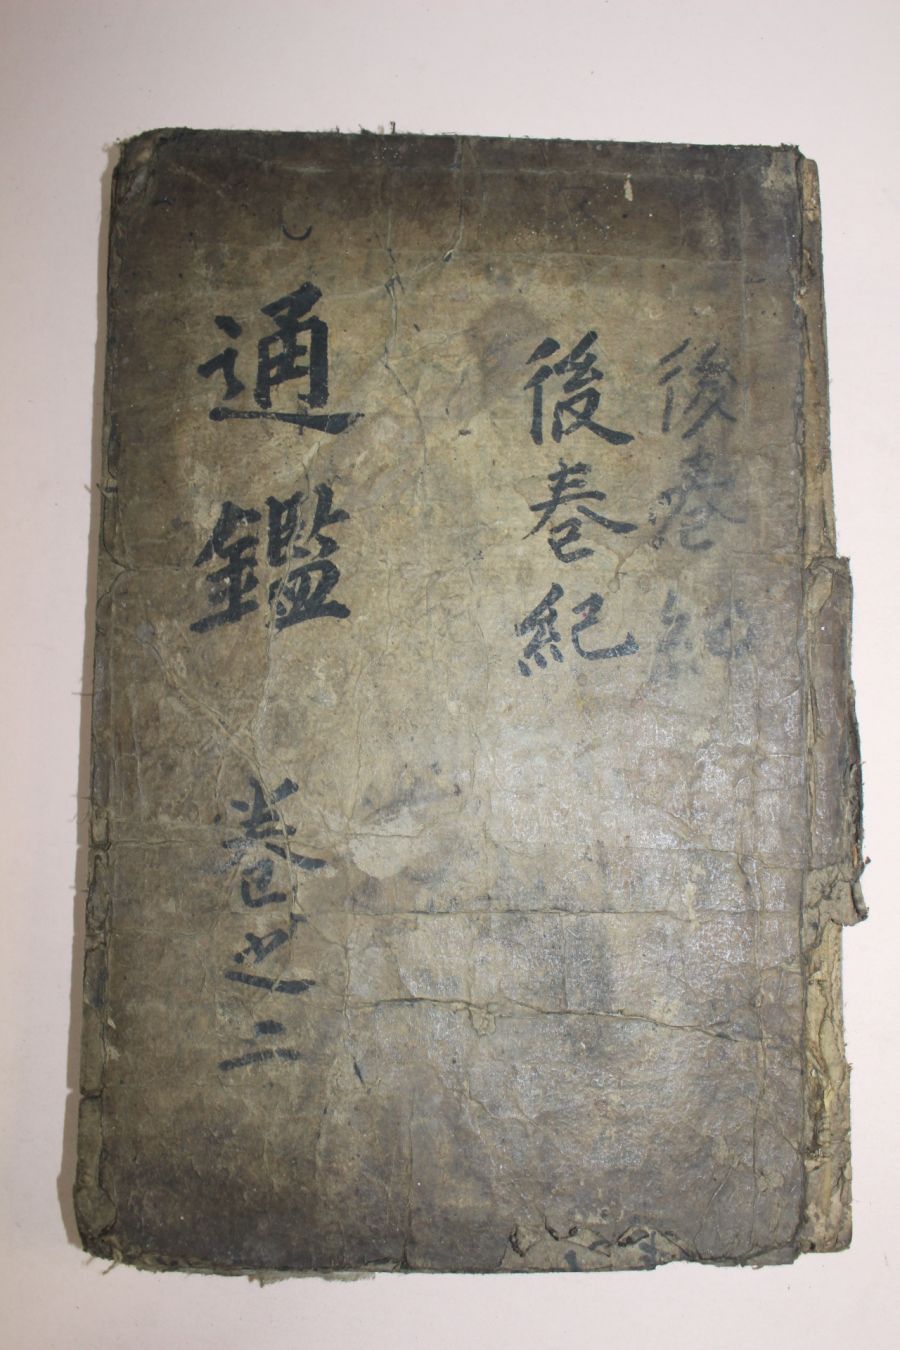 後卷紀
後卷紀
通鑑 卷之二